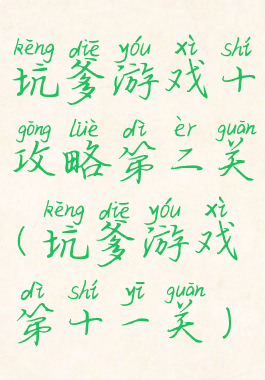 kēng diē yóu xì shí
坑爹游戏十
gōng lüè dì èr guān
攻略第二关
kēng diē yóu xì
(坑爹游戏
dì shí yī guān
第十一关)